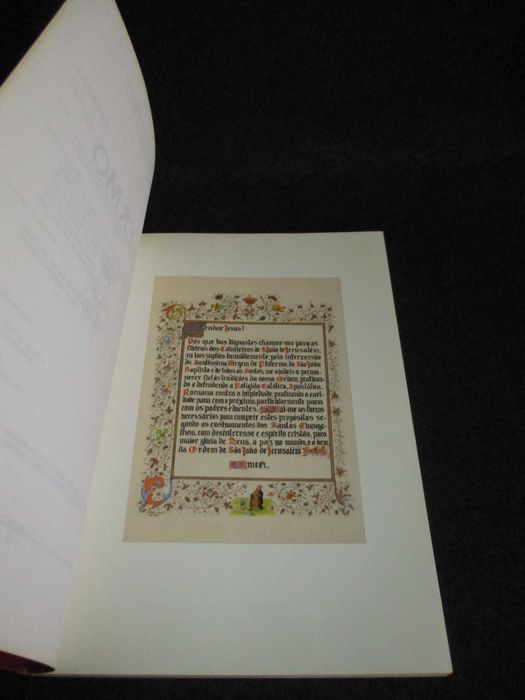 Senhor Jesus!
Vós que vos dignastes chamar-me para as
fileiras dos Cavaleiros de São João de Jerusalém,
eu vos suplico humildemente, pela intercessão
da Santíssima Virgem de Philermo, de São João
Baptista e de todos os Santos, me ajudeis a perma-
necer fiel às tradições da nossa Ordem, pratican-
do e defendendo a Religião Católica, Apostólica,
Romana contra a impiedade, praticando a cari-
dade para com o próximo, particularmente para
com os pobres e doentes. Dai-me as forças
necessárias para cumprir estes propósitos se-
gundo os ensinamentos dos Santos Evange-
lhos, com desinteresse e espírito cristão, para
maior glória de Deus, a paz no mundo, e o bem
da Ordem de São João de Jerusalém
Amen.